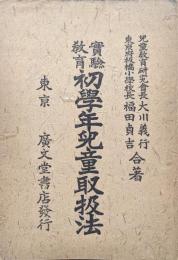 兒童教育研究會長 大川義行
東京府板橋小學校長 福田貞吉
合著
實驗教育
初學年兒童取扱法
東京 廣文堂書店發行